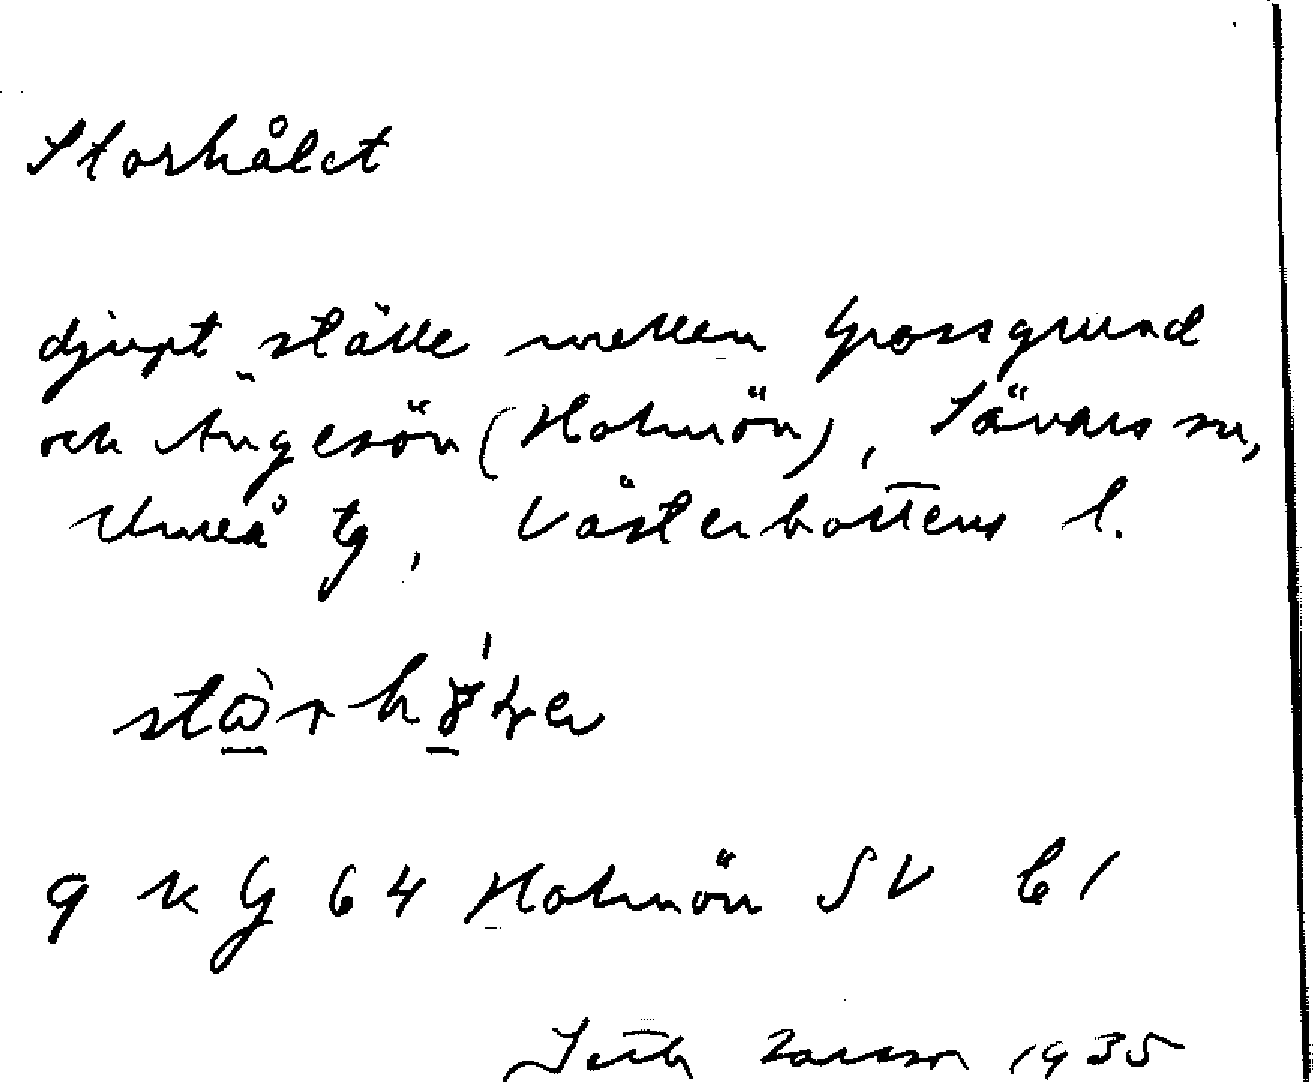 Storhålet
djupt ställe mellan Grossgrund
och Ängesön (Holmön), Sävars sn,
Umeå tg, Västerbottens l.
9 k G 64 Holmön SV b 1
Larsson 1935